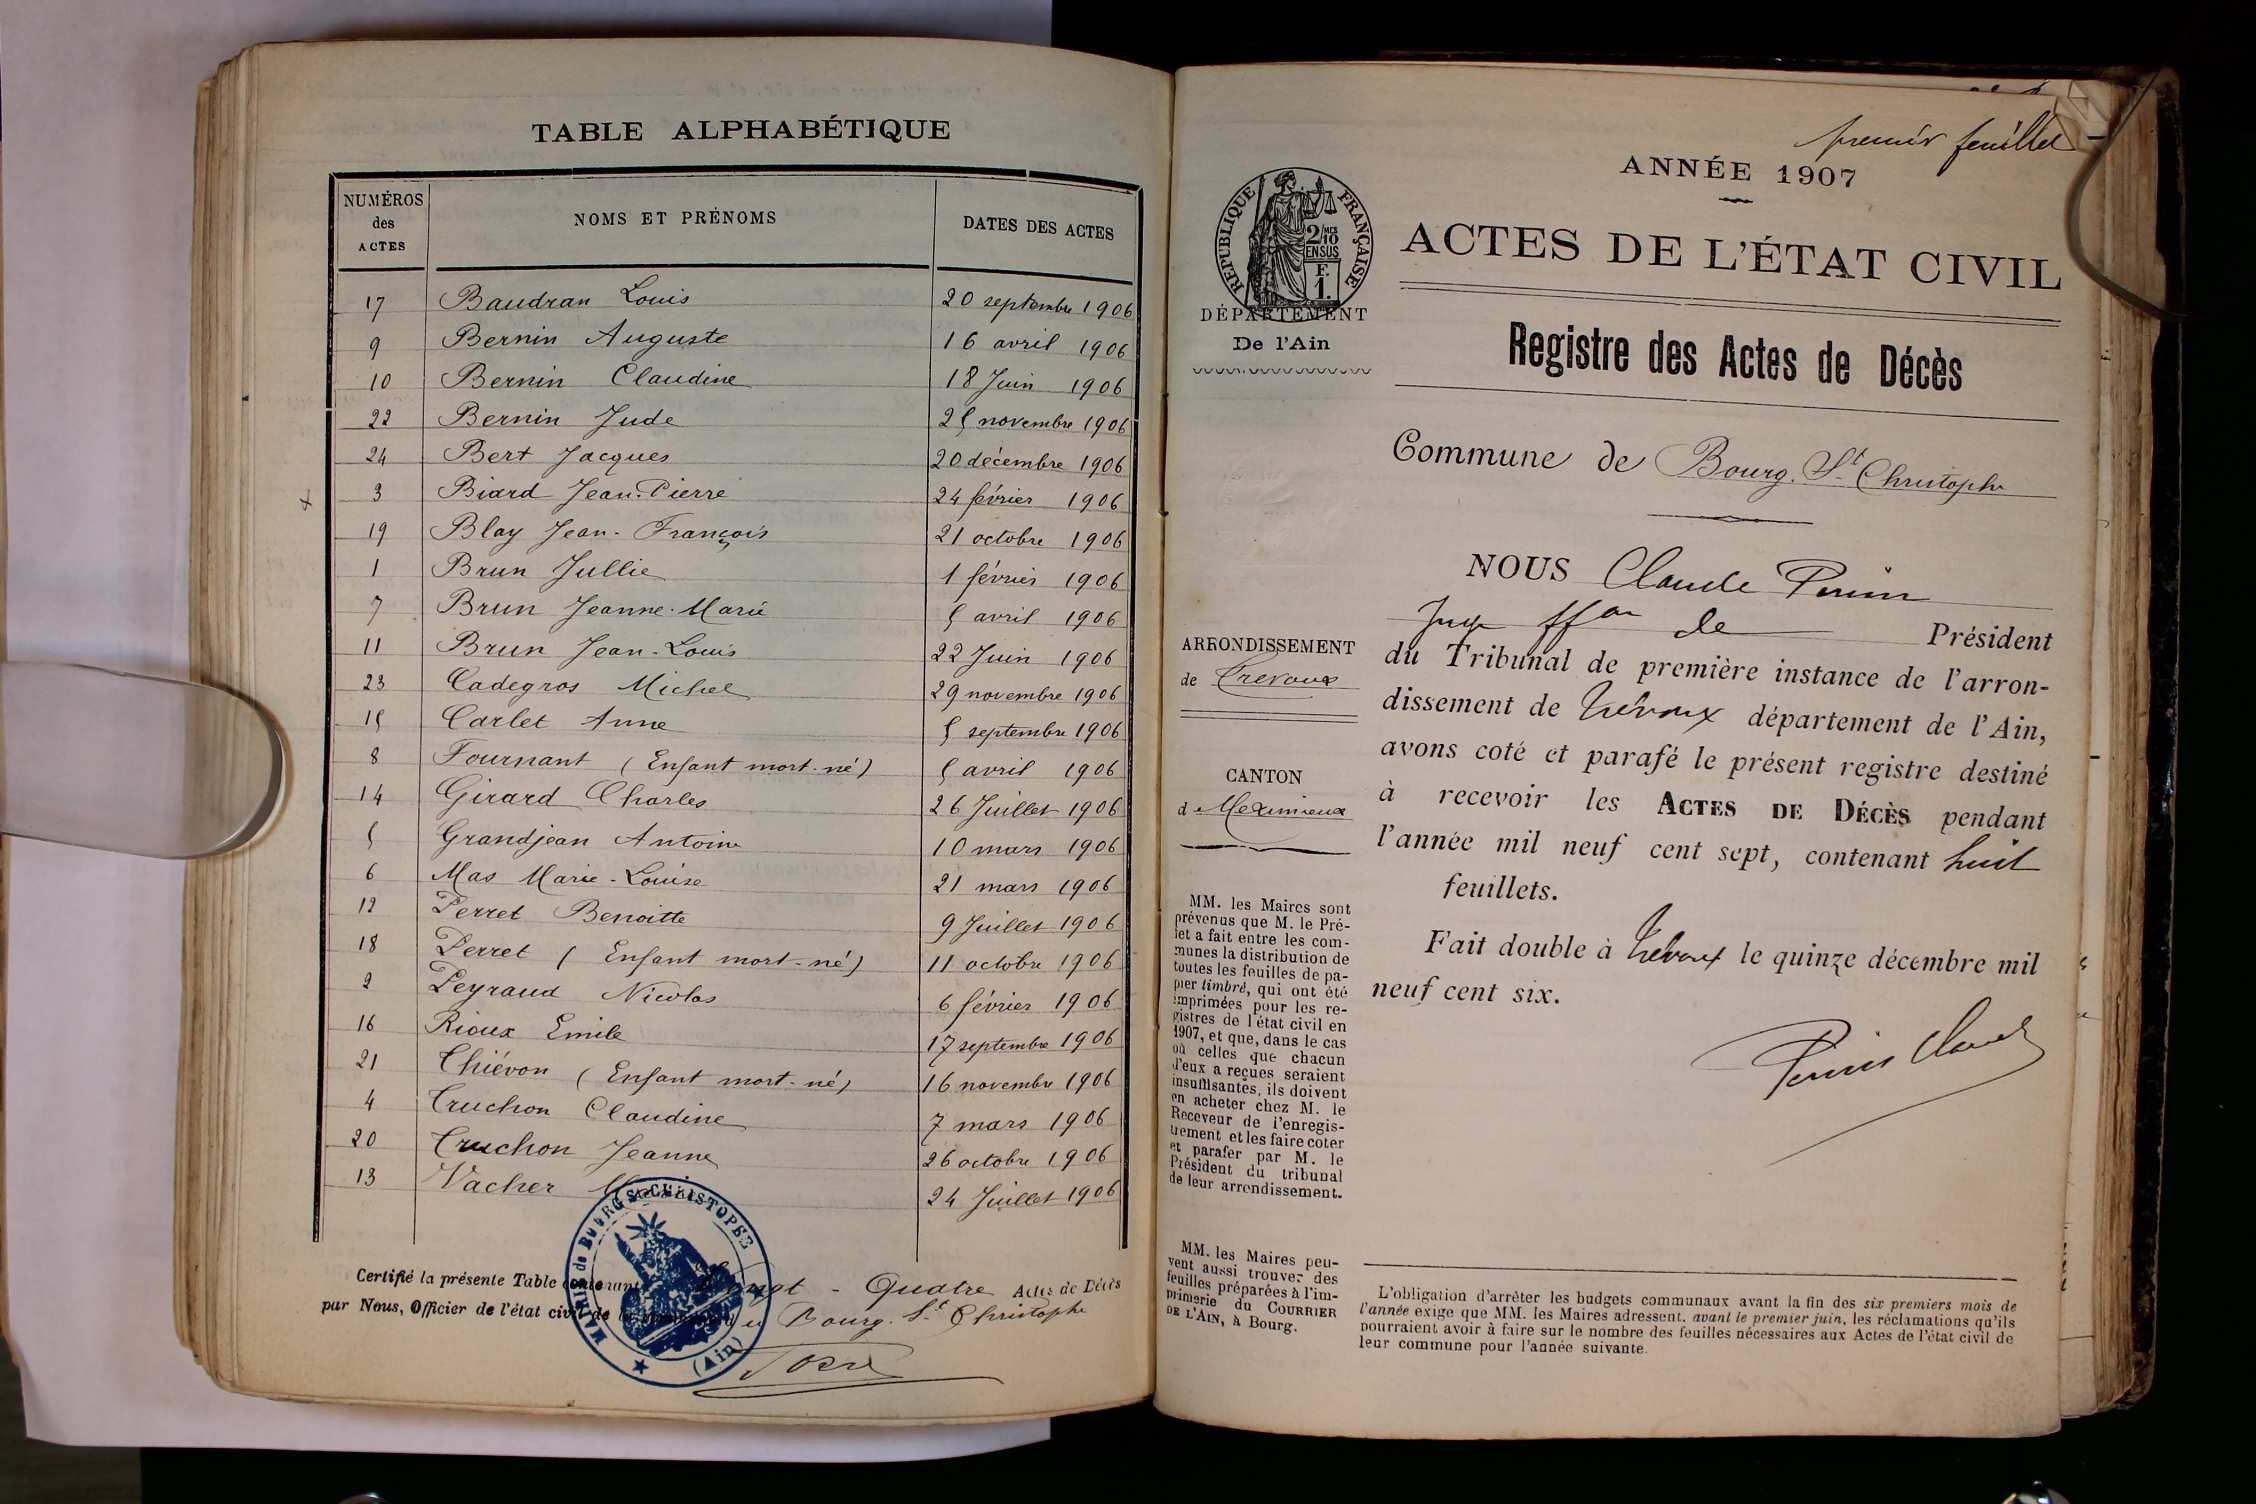 TABLE ALPHABÉTIQUE
NUMÉROS des ACTES NOMS ET PRÉNOMS DATES DES ACTES
17 Baudran Louis 20 septembre 1906
9 Bernin Auguste 16 avril 1906
10 Bernin Claudine 18 Juin 1906
22 Bernin Jude 25 novembre 1906
24 Bert Jacques 20 décembre 1906
3 Biard Jean-Pierre 24 février 1906
19 Blay Jean-François 21 octobre 1906
1 Brun Jullie 1 février 1906
7 Brun Jeanne-Marie 5 avril 1906
11 Brun Jean-Louis 22 Juin 1906
23 Cadegros Michel 29 novembre 1906
15 Carlet Anne 5 septembre 1906
8 Fournant (Enfant mort-né) 5 avril 1906
14 Girard Charles 26 Juillet 1906
5 Grandjean Antoine 10 mars 1906
6 Mas Marie-Louise 21 mars 1906
12 Perret Benoitte 9 Juillet 1906
18 Perret (Enfant mort-né) 11 octobre 1906
2 Peyraud Nicolas 6 février 1906
16 Rioux Emile 17 septembre 1906
21 Thiévon (Enfant mort-né) 16 novembre 1906
4 Truchon Claudine 7 mars 1906
20 Truchon Jeanne 26 octobre 1906
13 Vacher 24 Juillet 1906
MAIRIE de BOURG ST CHRISTOPHE
(Ain)
Certifié la présente Table contenant Vingt-Quatre Actes de Décès
par Nous, Officier de l'état civil de Bourg-St Christophe
premier feuillet
ANNÉE 1907
RÉPUBLIQUE FRANÇAISE
2/10 MES
EN SUS
F.
1.
ACTES DE L'ÉTAT CIVIL
DÉPARTEMENT
De l'Ain
Registre des Actes de Décès
Commune de Bourg-St-Christophe
NOUS Claude
Juge ffon de Président
du Tribunal de première instance de l'arron-
dissement de Trévoux département de l'Ain,
avons coté et parafé le présent registre destiné
à recevoir les ACTES DE DÉCÈS pendant
l'année mil neuf cent sept, contenant huit
feuillets.
Fait double à Trévoux le quinze décembre mil
neuf cent six.
ARRONDISSEMENT
de Trévoux
CANTON
de Meximieux
MM. les Maires sont
prévenus que M. le Pré-
fet a fait entre les com-
munes la distribution de
toutes les feuilles de pa-
pier timbré, qui ont été
imprimées pour les re-
gistres de l'état civil en
1907, et que, dans le cas
où celles que chacun
d'eux a reçues seraient
insuffisantes, ils doivent
en acheter chez M. le
Receveur de l'enregis-
trement et les faire coter
et parafer par M. le
Président du tribunal
de leur arrondissement.
MM. les Maires peu-
vent aussi trouver des
feuilles préparées à l'im-
primerie du COURRIER
DE L'AIN, à Bourg.
L'obligation d'arrêter les budgets communaux avant la fin des six premiers mois de
l'année exige que MM. les Maires adressent, avant le premier juin, les réclamations qu'ils
pourraient avoir à faire sur le nombre des feuilles nécessaires aux Actes de l'état civil de
leur commune pour l'année suivante.